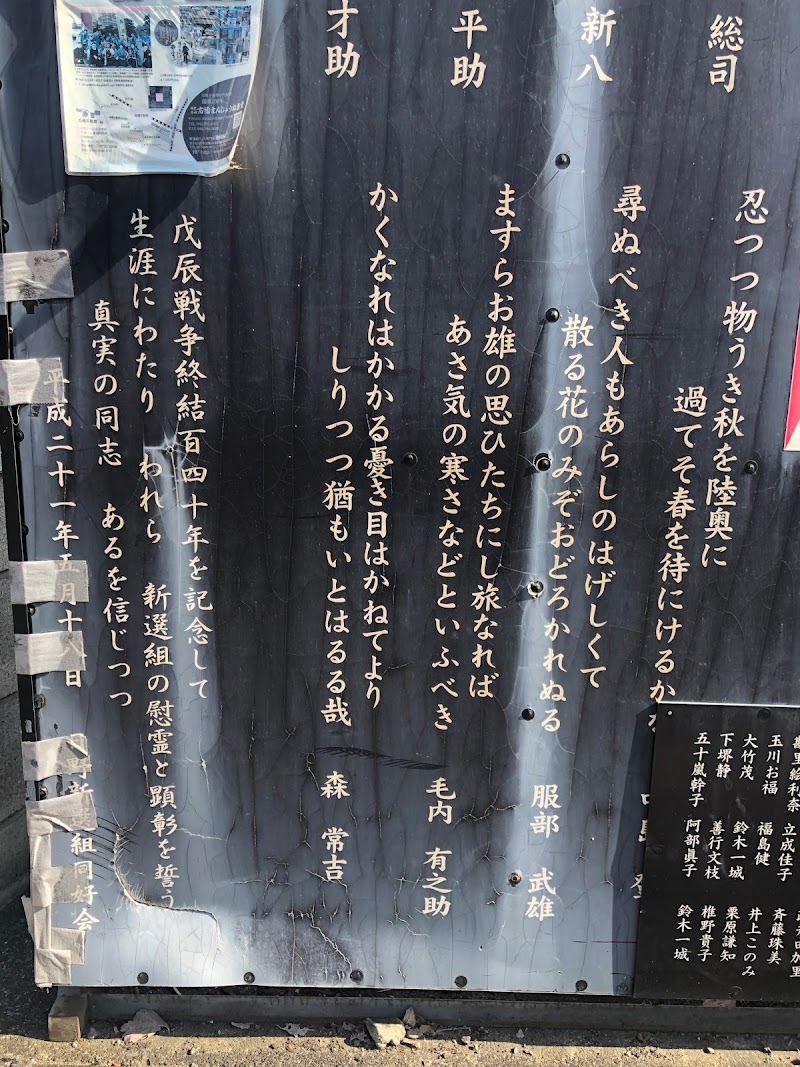 総司
新八
平助
才助
忍つつ物うき秋を陸奥に
過てそ春を待にけるか
尋ぬべき人もあらしのはげしくて
散る花のみぞおどろかれぬる
服部 武雄
ますらお雄の思ひたちにし旅なれば
あさ気の寒さなどといふべき
毛内 有之助
かくなれはかかる憂き目はかねてより
しりつつ猶もいとはるる哉
森 常吉
戊辰戦争終結百四十年を記念して
生涯にわたり われら 新選組の慰霊と顕彰を誓う
真実の同志 あるを信じつつ
平成二十一年五月十八日
野新選組同好会
玉川お福 立成佳子
大竹茂 福島健 斉藤珠美
下堺静 鈴木一城 井上このみ
五十嵐幹子 善行文枝 栗原謙知
阿部眞子 椎野貴子
鈴木一城